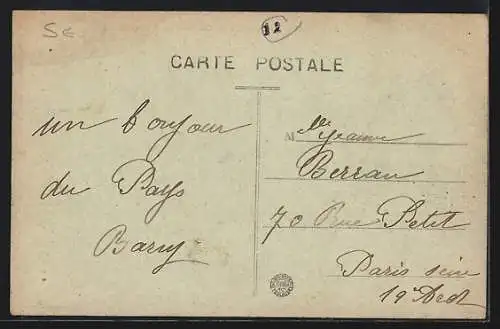 Se
12
CARTE POSTALE
un bonjour
du Pays
Barry
Mlle Jeanne
Berrau
70 Rue Petit
Paris seine
19e Ardt